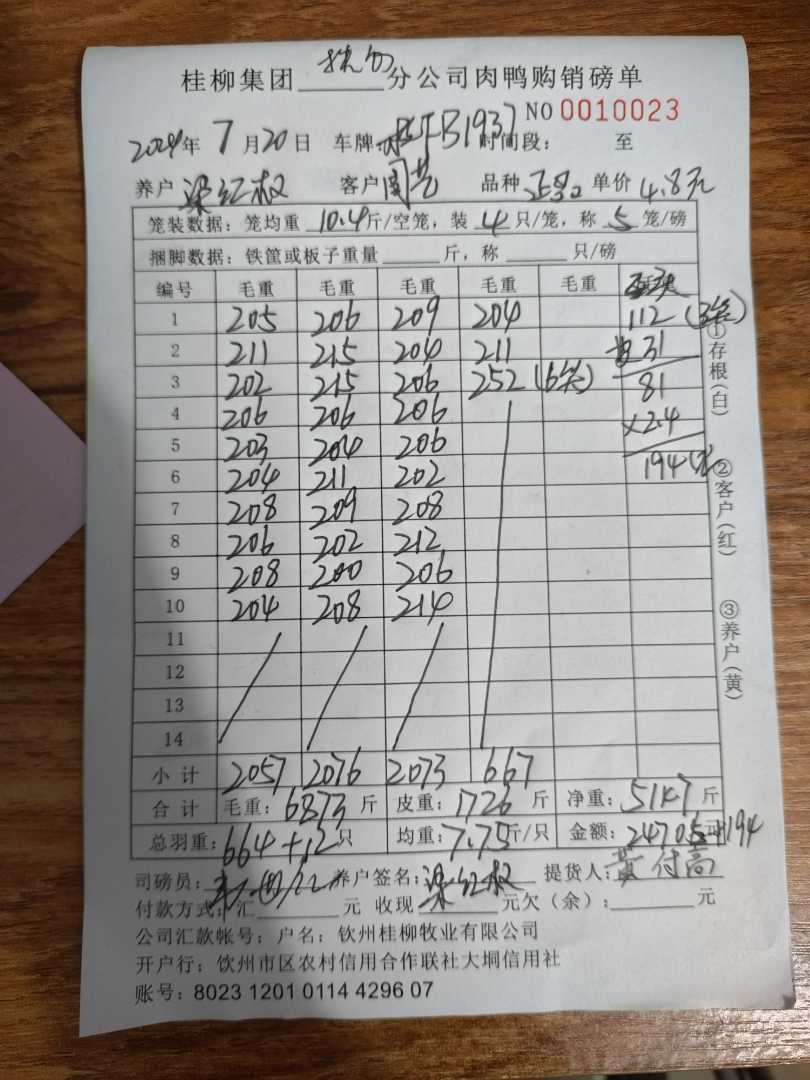 桂柳集团 钦州 分公司肉鸭购销磅单
NO 0010023
2024年 7 月 20 日 车牌: FB1937 时间段: 至
养户 梁红权 客户 周艺 品种 正品 单价 4.8元
笼装数据: 笼均重 10.4 斤/空笼, 装 4 只/笼, 称 5 笼/磅
捆脚数据: 铁筐或板子重量 斤, 称 只/磅
编号 毛重 毛重 毛重 毛重 毛重
1 205 206 209 204 112 (3笼)
2 211 215 204 211 31
3 202 215 206 252 (6笼) 81
4 206 206 206 ×2.4
5 203 204 206 194
6 204 211 202
7 208 209 208
8 206 202 212
9 208 200 206
10 204 208 214
11
12
13
14
小计 2057 2076 2073 667
合计 毛重: 6873 斤 皮重: 1726 斤 净重: 5147 斤
总羽重: 664+12 只 均重: 7.75 斤/只 金额: 24705元+194
司磅员: 养户签名: 梁红权 提货人: 黄付高
付款方式: 汇 元 收现 元欠(余): 元
公司汇款帐号: 户名: 钦州桂柳牧业有限公司
开户行: 钦州市区农村信用合作联社大垌信用社
账号: 8023 1201 0114 4296 07
①存根(白)
②客户(红)
③养户(黄)